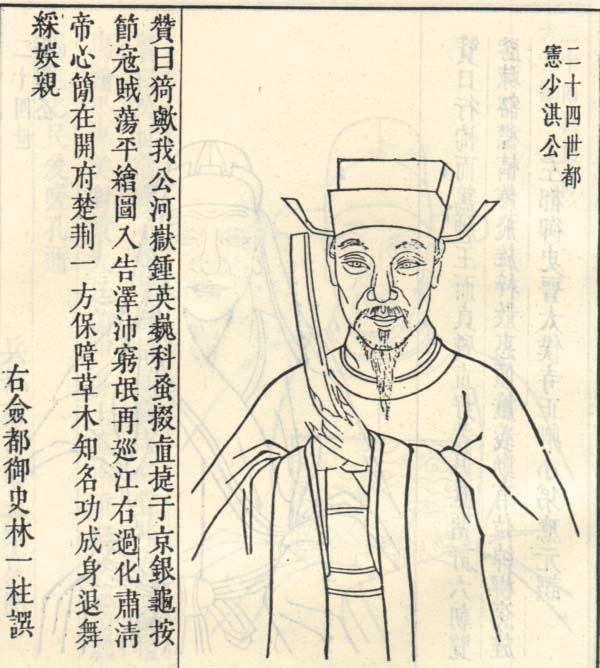 二十四世都
憲少淇公
贊曰猗歟我公河嶽鍾英巍科蚤掇直㨗于京銀龜按
節寇賊蕩平繪圖入告澤沛窮氓再巡江右過化肅清
帝心簡在開府楚荆一方保障草木知名功成身退舞
綵娛親
右僉都御史林一柱譔